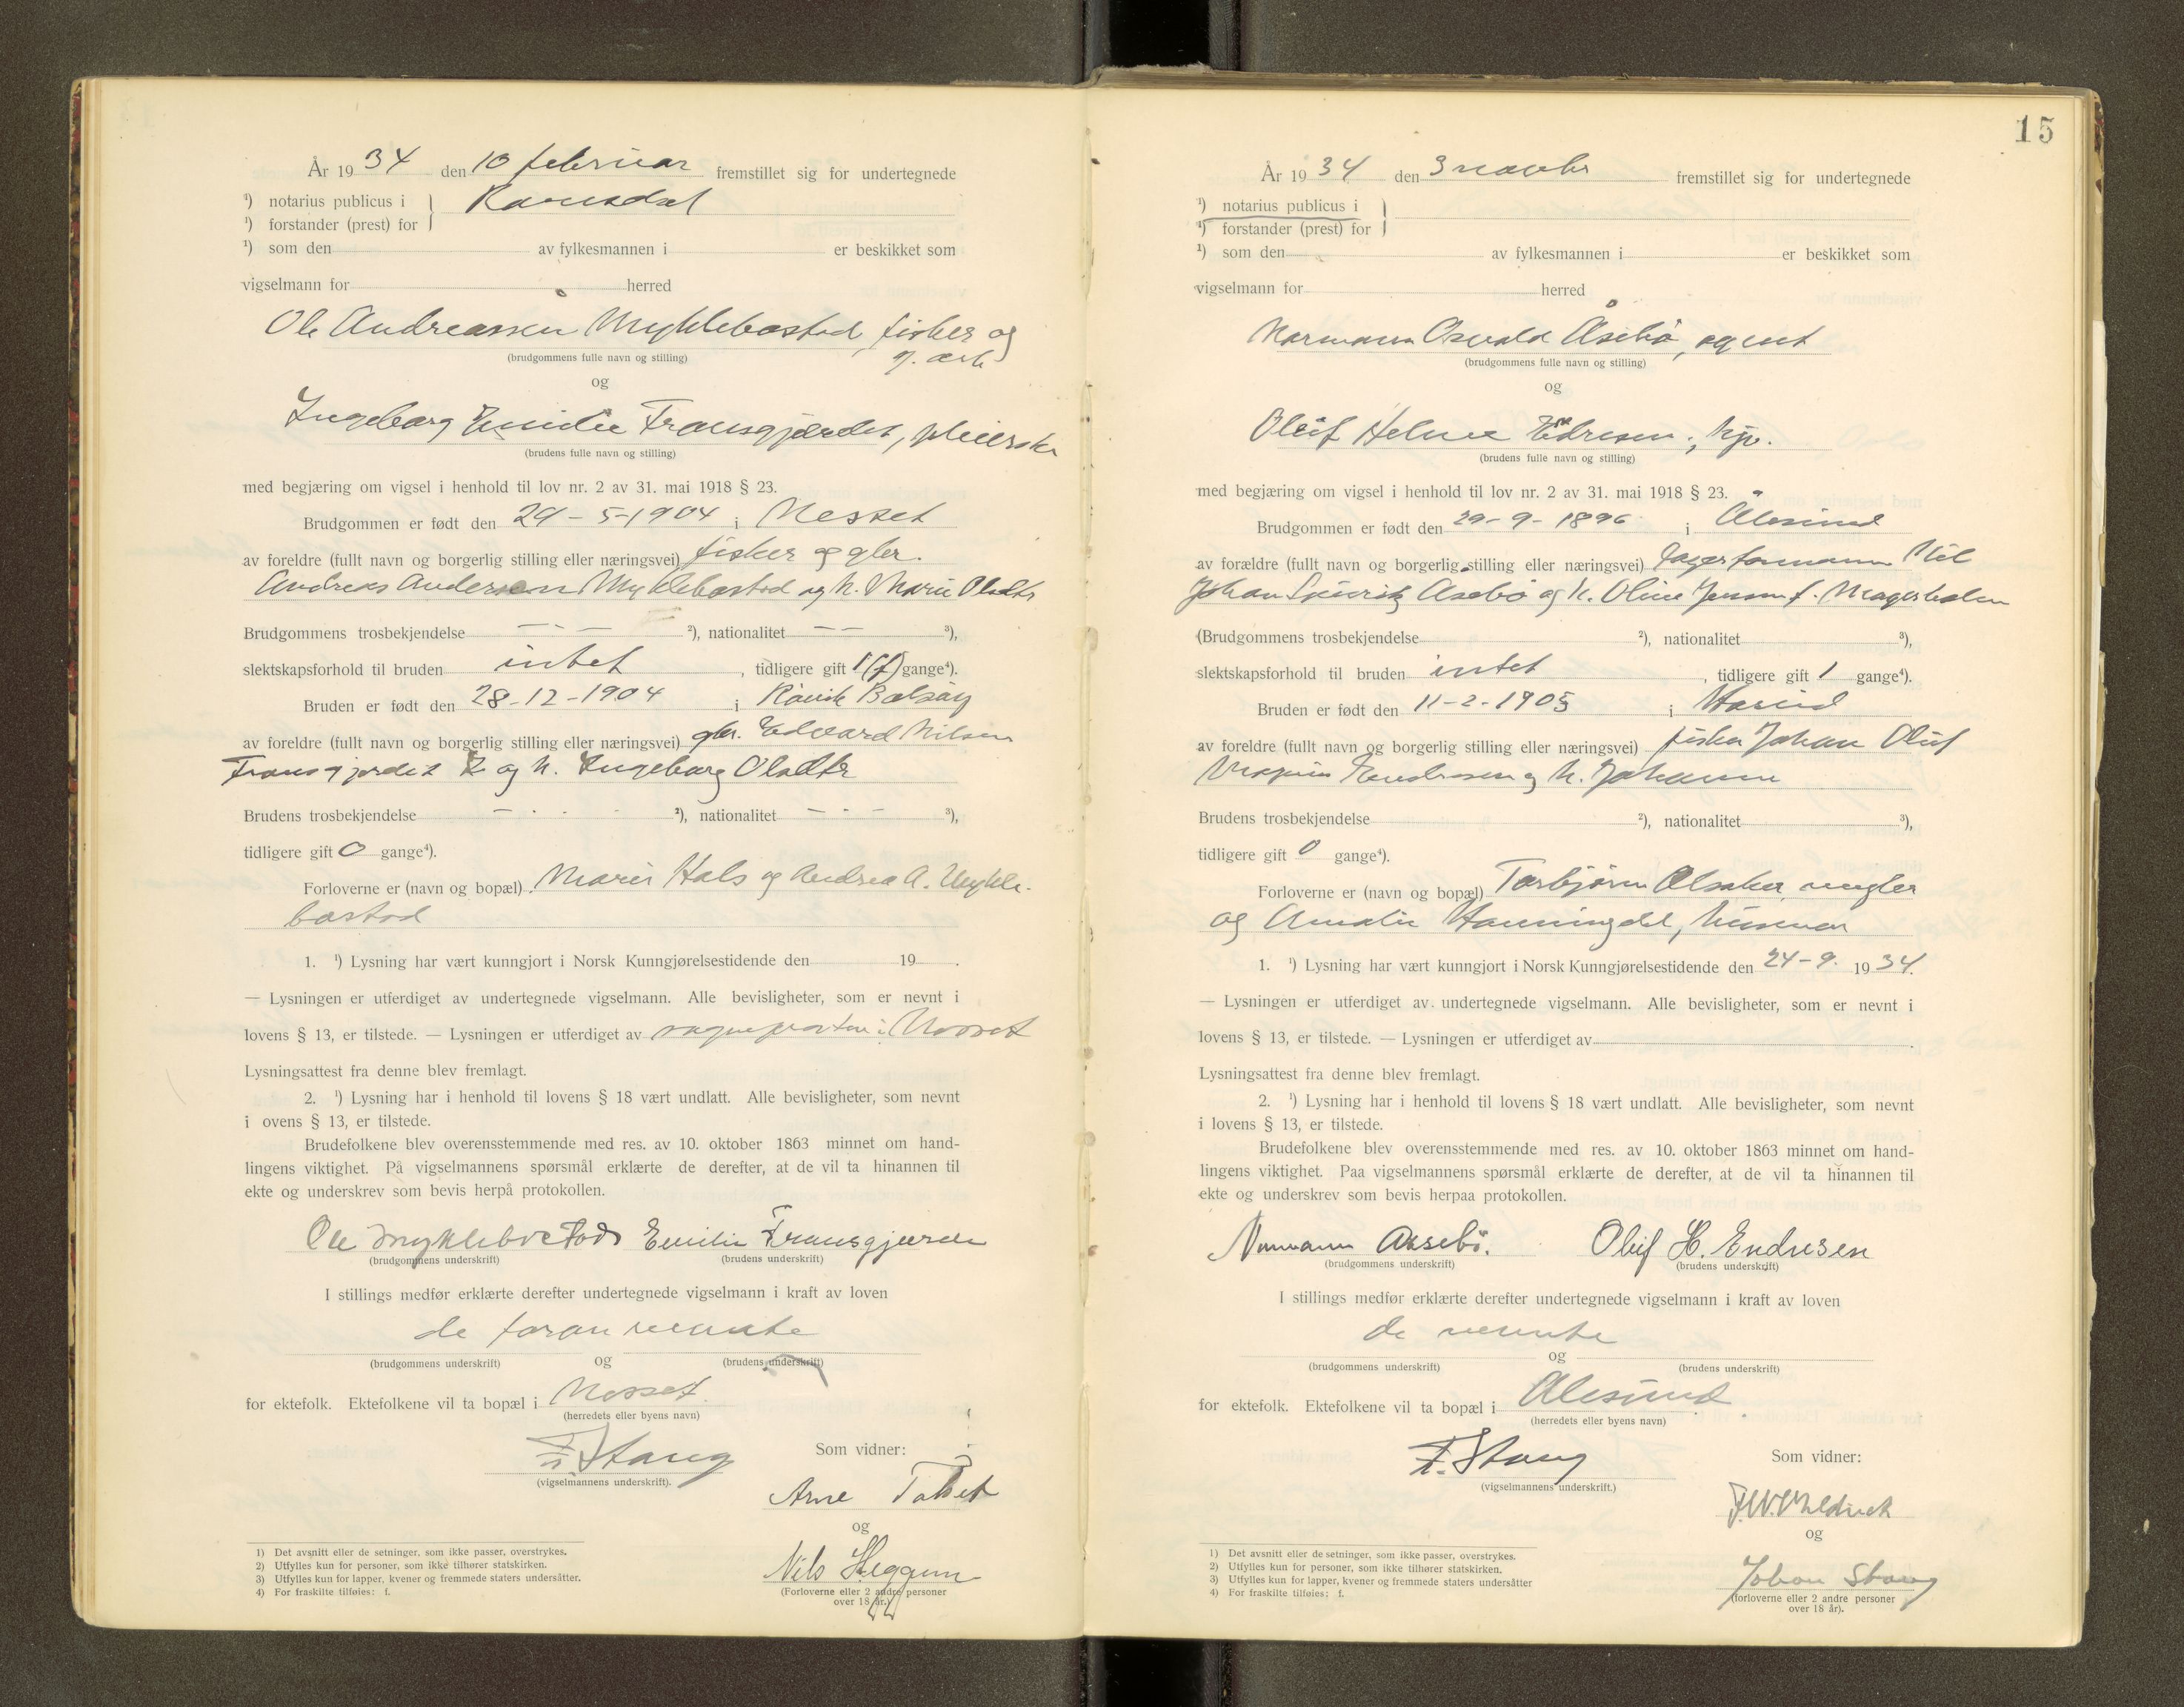 År 1934 den 10 februar fremstillet sig for undertegnede
¹) notarius publicus i Romsdal
¹) forstander (prest) for
¹) som den av fylkesmannen i er beskikket som
vigselmann for herred
Ole Andreassen Myklebostad, fisker og
g. arb
(brudgommens fulle navn og stilling)
og
Ingeborg Emilie Fransgjerdet, pleierske
(brudens fulle navn og stilling)
med begjæring om vigsel i henhold til lov nr. 2 av 31. mai 1918 § 23.
Brudgommen er født den 29-5-1904 i Nesset
av foreldre (fullt navn og borgerlig stilling eller næringsvei) fisker og gbr.
Andreas Andersen Myklebostad og h. Marie Olsdtr
Brudgommens trosbekjendelse — - — ²), nationalitet — — ³),
slektskapsforhold til bruden intet, tidligere gift 1 (f) gange⁴).
Bruden er født den 28-12-1904 i Røvik Bolsøy
av foreldre (fullt navn og borgerlig stilling eller næringsvei) gbr. Edvard Nilsen
Fransgjerdet og h. Ingeborg Olsdtr
Brudens trosbekjendelse — - - ²), nationalitet — - — ³),
tidligere gift 0 gange⁴).
Forloverne er (navn og bopæl) Marie Hals og Andrea A. Mykle-
bostad
1. ¹) Lysning har vært kunngjort i Norsk Kunngjørelsestidende den 19 .
— Lysningen er utferdiget av undertegnede vigselmann. Alle bevisligheter, som er nevnt i
lovens § 13, er tilstede. — Lysningen er utferdiget av sogneprosten i Nesset
Lysningsattest fra denne blev fremlagt.
2. ¹) Lysning har i henhold til lovens § 18 vært undlatt. Alle bevisligheter, som nevnt
i ovens § 13, er tilstede.
Brudefolkene blev overensstemmende med res. av 10. oktober 1863 minnet om hand-
lingens viktighet. På vigselmannens spørsmål erklærte de derefter, at de vil ta hinannen til
ekte og underskrev som bevis herpå protokollen.
Ole Myklebostad Emilie Fransgjerde
(brudgommens underskrift) (brudens underskrift)
I stillings medfør erklærte derefter undertegnede vigselmann i kraft av loven
de foran nevnte
(brudgommens underskrift) og (brudens underskrift)
for ektefolk. Ektefolkene vil ta bopæl i Nesset
(herredets eller byens navn)
F. Stang
(vigselmannens underskrift).
Som vidner:
Arne
og
Nils Heggem
(Forloverne eller 2 andre personer
over 18 år.)
1) Det avsnitt eller de setninger, som ikke passer, overstrykes.
2) Utfylles kun for personer, som ikke tilhører statskirken.
3) Utfylles kun for lapper, kvener og fremmede staters undersåtter.
4) For fraskilte tilføies: f.
15
År 1934 den 3 novbr fremstillet sig for undertegnede
¹) notarius publicus i
¹) forstander (prest) for
¹) som den av fylkesmannen i er beskikket som
vigselmann for herred
Normann Osvald Åsebø, agent
(brudgommens fulle navn og stilling)
og
Oluf Helene Endresen, hjv.
(brudens fulle navn og stilling)
med begjæring om vigsel i henhold til lov nr. 2 av 31. mai 1918 § 23.
Brudgommen er født den 29-9-1896 i Ålesund
av forældre (fullt navn og borgerlig stilling eller næringsvei) lagerformann Nil
Johan Åsebø og h. Oline Jensen f.
(Brudgommens trosbekjendelse ²), nationalitet ³),
slektskapsforhold til bruden intet, tidligere gift 1 gange⁴).
Bruden er født den 11-2-1905 i Hareid
av foreldre (fullt navn og borgerlig stilling eller næringsvei) fisker Johan Oluf
Magnus Endresen og h. Johanne
Brudens trosbekjendelse ²), nationalitet ³),
tidligere gift 0 gange⁴).
Forloverne er (navn og bopæl) Torbjørn Olsaker, megler
og Amalie
1. ¹) Lysning har vært kunngjort i Norsk Kunngjørelsestidende den 24-9. 1934.
— Lysningen er utferdiget av undertegnede vigselmann. Alle bevisligheter, som er nevnt i
lovens § 13, er tilstede. — Lysningen er utferdiget av .
Lysningsattest fra denne blev fremlagt.
2. ¹) Lysning har i henhold til lovens § 18 vært undlatt. Alle bevisligheter, som nevnt
i lovens § 13, er tilstede.
Brudefolkene blev overensstemmende med res. av 10. oktober 1863 minnet om hand-
lingens viktighet. Paa vigselmannens spørsmål erklærte de derefter, at de vil ta hinannen til
ekte og underskrev som bevis herpaa protokollen.
Normann Aasebø. Oluf H. Endresen
(brudgommens underskrift) (brudens underskrift)
I stillings medfør erklærte derefter undertegnede vigselmann i kraft av loven
de nevnte
(brudgommens underskrift) og (brudens underskrift)
for ektefolk. Ektefolkene vil ta bopæl i Ålesund
(herredets eller byens navn)
F. Stang
(vigselmannens underskrift.)
Som vidner:
og
Johan Stang
(forloverne eller 2 andre personer
over 18 år).
1) Det avsnitt eller de setninger, som ikke passer, overstrykes.
2) Utfylles kun for personer, som ikke tilhører statskirken.
3) Utfylles kun for lapper, kvener og fremmede staters undersåtter
4) For fraskilte tilføies: f.